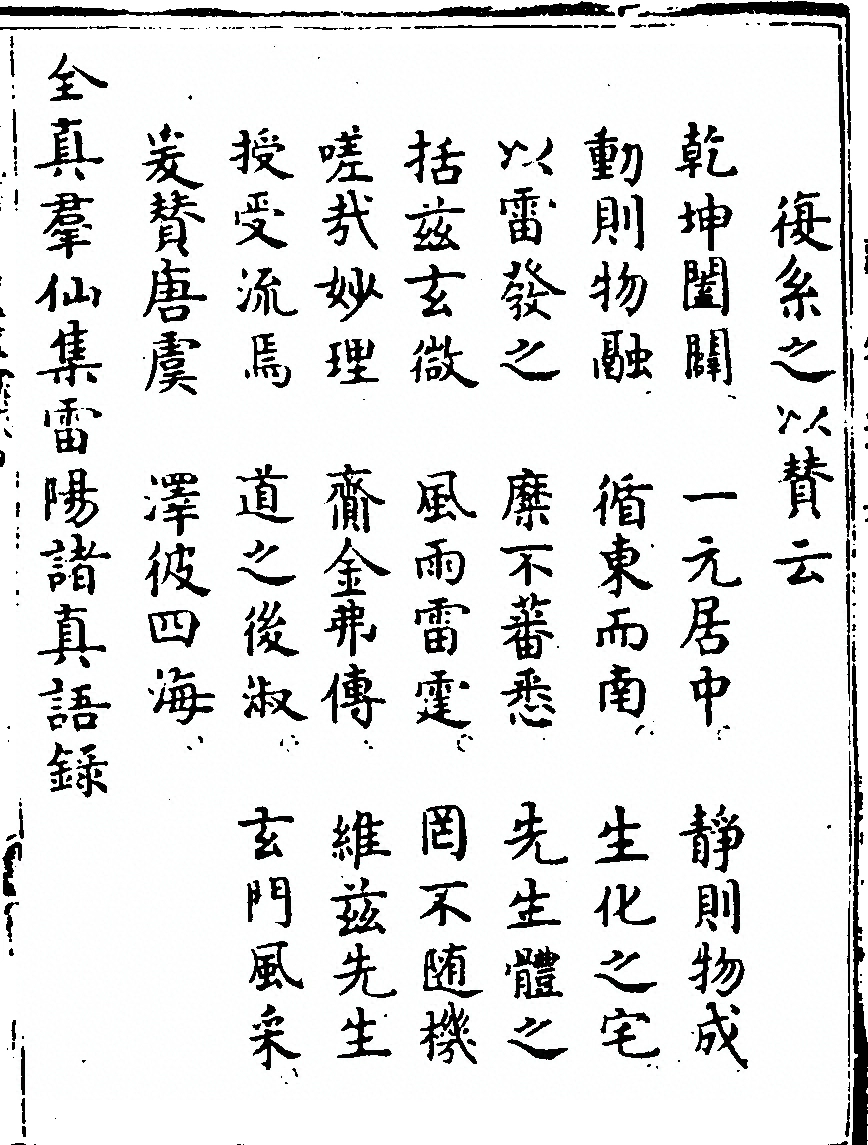 復系之以贊云
乾坤闔闢 一元居中 靜則物成
動則物融 循東而南 生化之宅
以雷發之 糜不蕃悉 先生體之
括兹玄微 風雨雷霆 罔不随機
嗟㦲妙理 齎金弗傳 維兹先生
授受流焉 道之後淑 玄門風采
爰賛唐虞 澤彼四海
全真羣仙集雷陽諸真語録